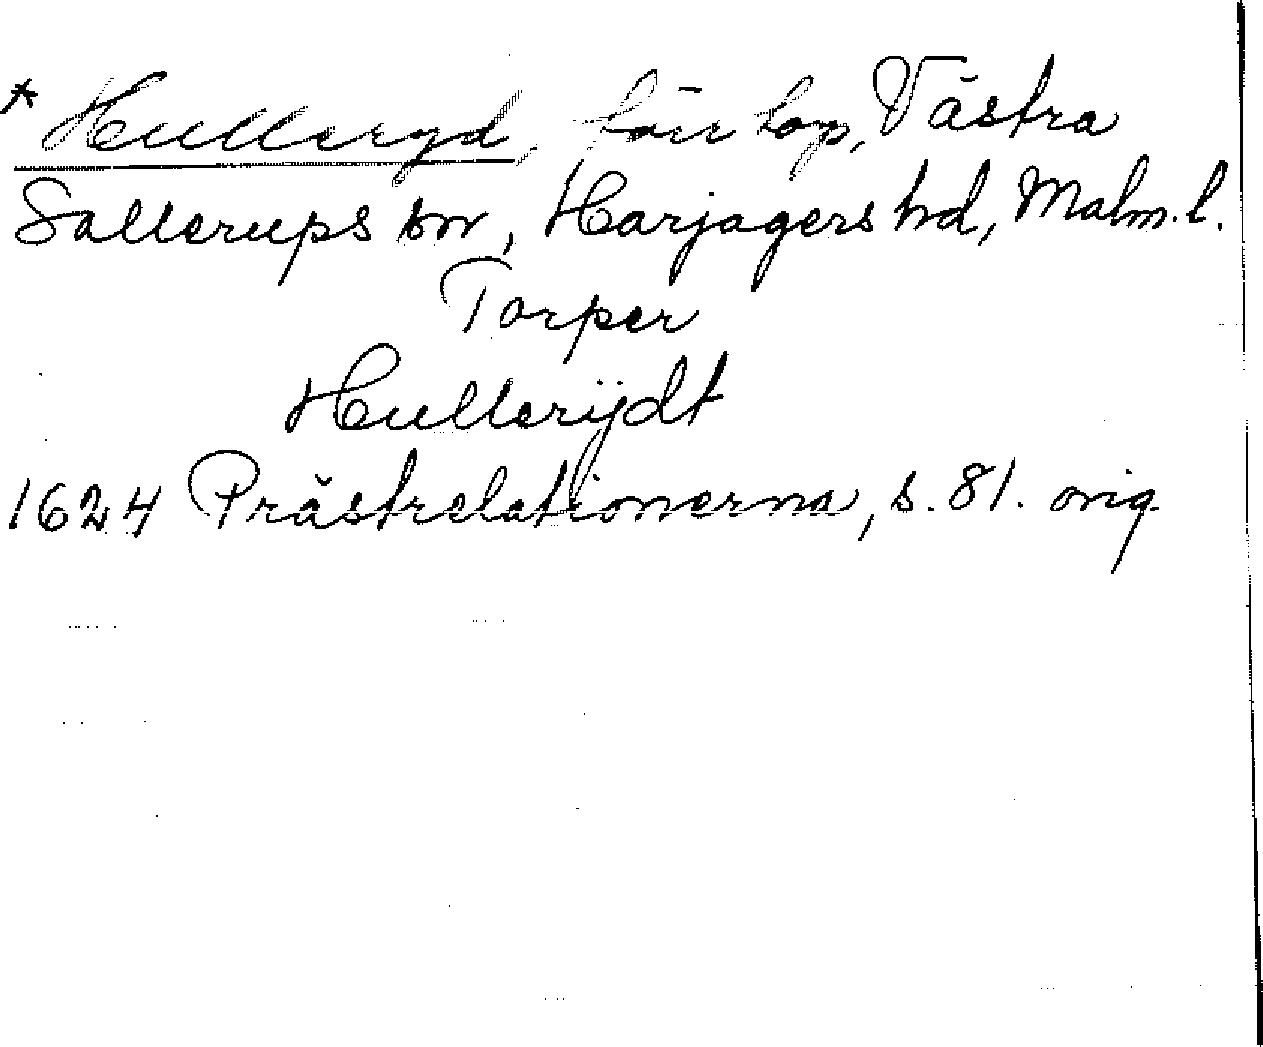 * Hulleryd, förr torp, Västra
Sallerups sn, Harjagers hd, Malm. l.
Torper
Hullerÿdt
1624 Prästrelationerna, s. 81. orig.